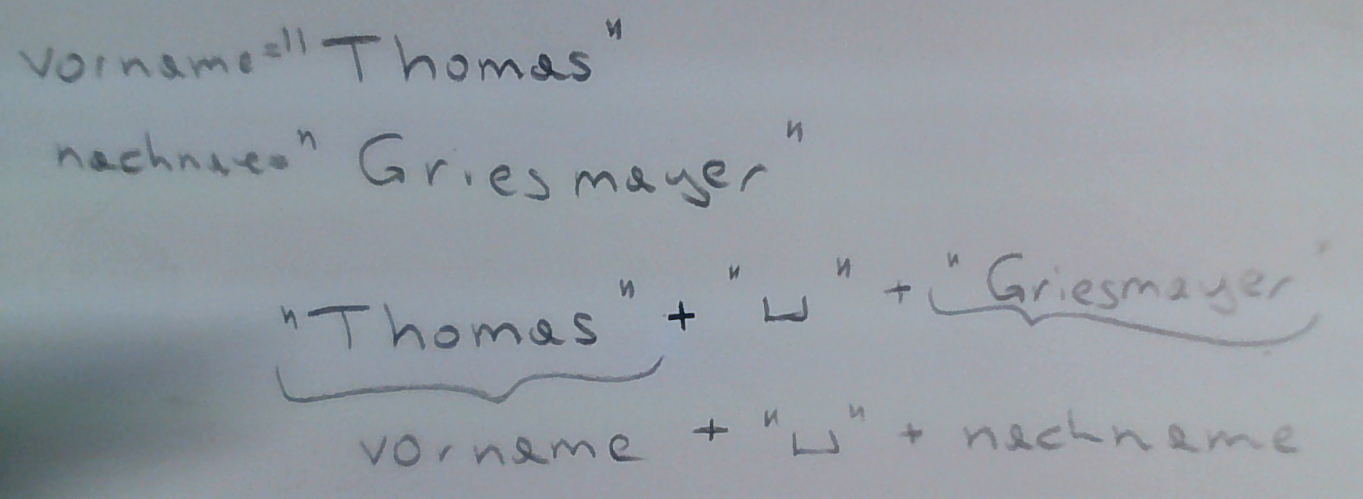 vorname="Thomas"
nachname="Griesmayer"
"Thomas" + "␣" + "Griesmayer"
vorname + "␣" + nachname